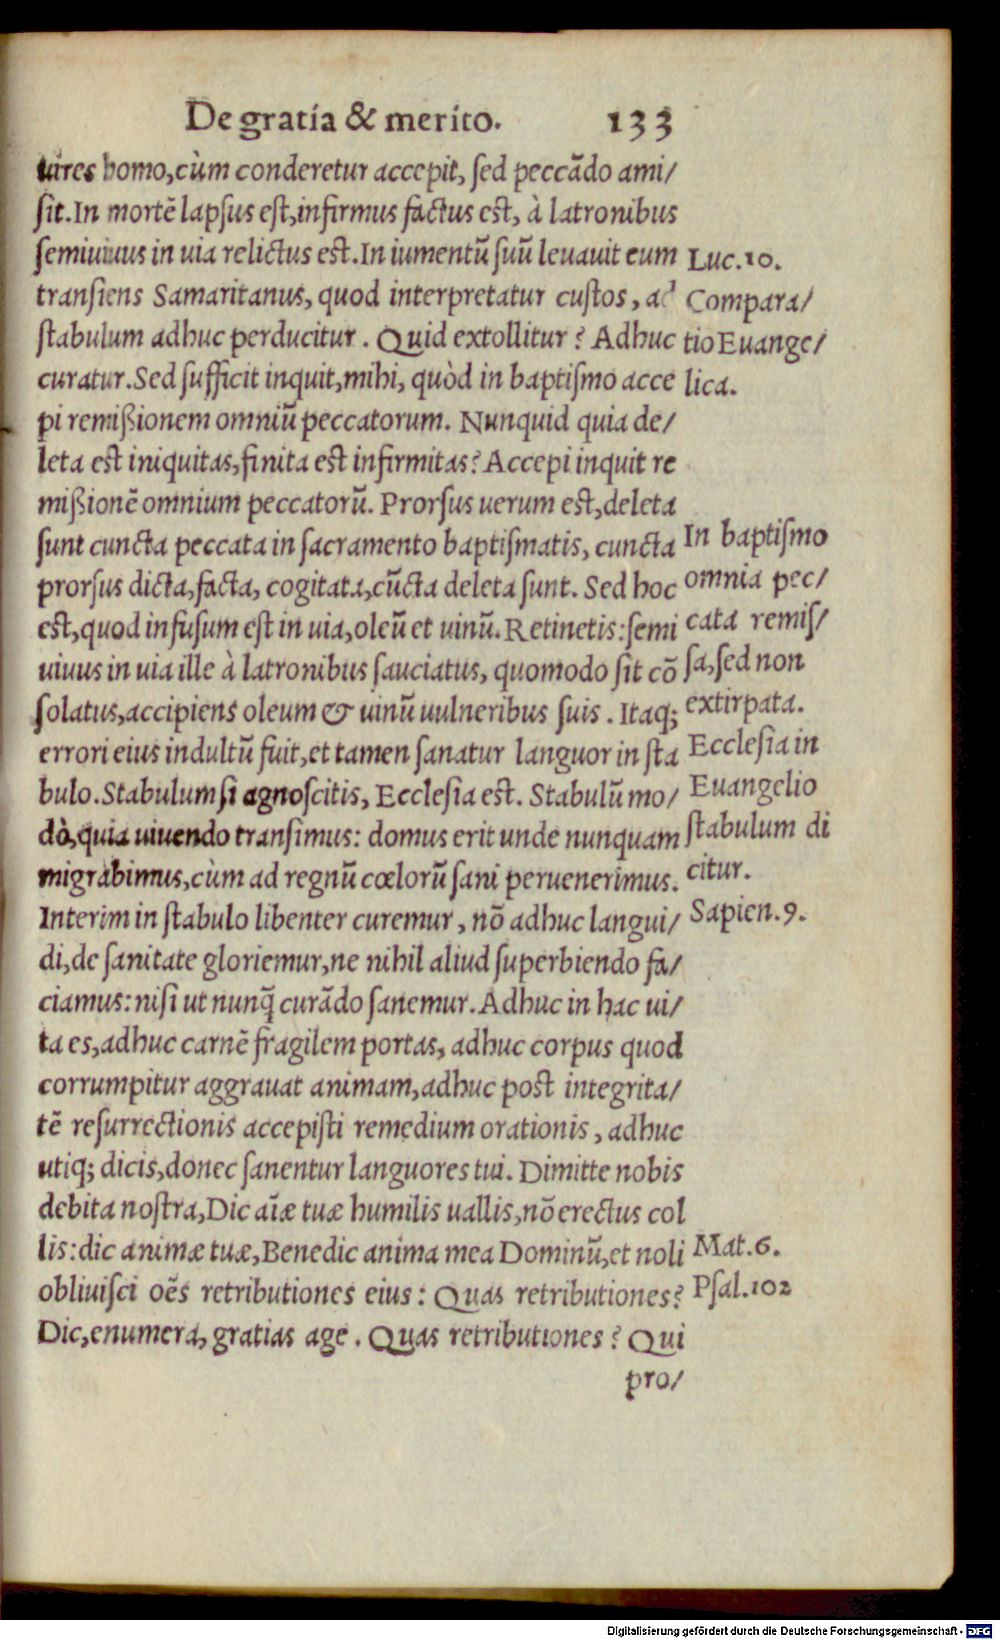 De gratia & merito. 133
uires homo, cùm conderetur accepit, ſed peccãdo ami/
ſit. In mortẽ lapſus eſt, infirmus factus eſt, à latronibus
ſemiuiuus in uia relictus est. In iumentũ ſuũ leuauit eum
Luc. 10.
tranſiens Samaritanus, quod interpretatur cuſtos, ad
Compara/
ſtabulum adhuc perducitur. Quid extollitur? Adhuc
tio Euange/
curatur. Sed ſufficit inquit, mihi, quòd in baptiſmo acce
lica.
pi remißionem omniũ peccatorum. Nunquid quia de/
leta est iniquitas, finita est infirmitas? Accepi inquit re
mißionẽ omnium peccatorũ. Prorſus uerum est, deleta
ſunt cuncta peccata in ſacramento baptiſmatis, cuncta
In baptiſmo
prorſus dicta, facta, cogitata, cũcta deleta ſunt. Sed hoc
omnia pec/
est, quod infuſum est in uia, oleũ et uinũ. Retinetis: ſemi
cata remiſ/
uiuus in uia ille à latronibus ſauciatus, quomodo ſit cõ
ſa, ſed non
ſolatus, accipiens oleum & uinũ uulneribus ſuis. Itaq;
extirpata.
errori eius indultũ fuit, et tamen ſanatur languor in ſta
Eccleſia in
bulo. Stabulum ſi agnoſcitis, Eccleſia est. Stabulũ mo/
Euangelio
dò, quia uiuendo tranſimus: domus erit unde nunquam
ſtabulum di
migrabimus, cùm ad regnũ cœlorũ ſani peruenerimus.
citur.
Interim in ſtabulo libenter curemur, nõ adhuc langui/
Sapien. 9.
di, de ſanitate gloriemur, ne nihil aliud ſuperbiendo fa/
ciamus: niſi ut nunq̃ curãdo ſanemur. Adhuc in hac ui/
ta es, adhuc carnẽ fragilem portas, adhuc corpus quod
corrumpitur aggrauat animam, adhuc post integrita/
tẽ reſurrectionis accepiſti remedium orationis, adhuc
utiq; dicis, donec ſanentur languores tui. Dimitte nobis
debita noſtra, Dic aĩæ tuæ humilis uallis, nõ erectus col
lis: dic animæ tuæ, Benedic anima mea Dominũ, et noli
Mat. 6.
obliuiſci oẽs retributiones eius: Quas retributiones?
Pſal. 102
Dic, enumera, gratias age. Quas retributiones? Qui
pro/
Digitalisierung gefördert durch die Deutsche Forschungsgemeinschaft - DFG